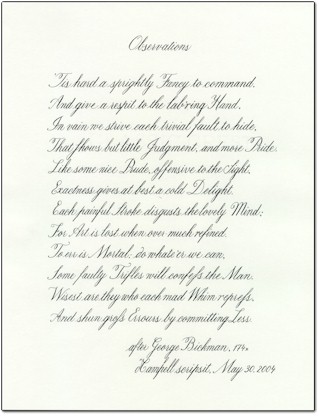 Observations
'Tis hard a sprightly Fancy to command,
And give a respit to the lab'ring Hand,
In vain we strive each trivial fault to hide,
That shows but little Judgment, and more Pride.
Like some nice Prude, offensive to the Sight,
Exactness gives at best a cold Delight.
Each painful Stroke disgusts the lovely Mind;
For Art is lost when over much refined.
To err is Mortal, do whate'er we can,
Some faulty Trifles will confess the Man.
Wisest are they who each mad Whim repress,
And shun gross Errours by committing Less.
after George Bickman, 174
scripsit, May 30, 2004